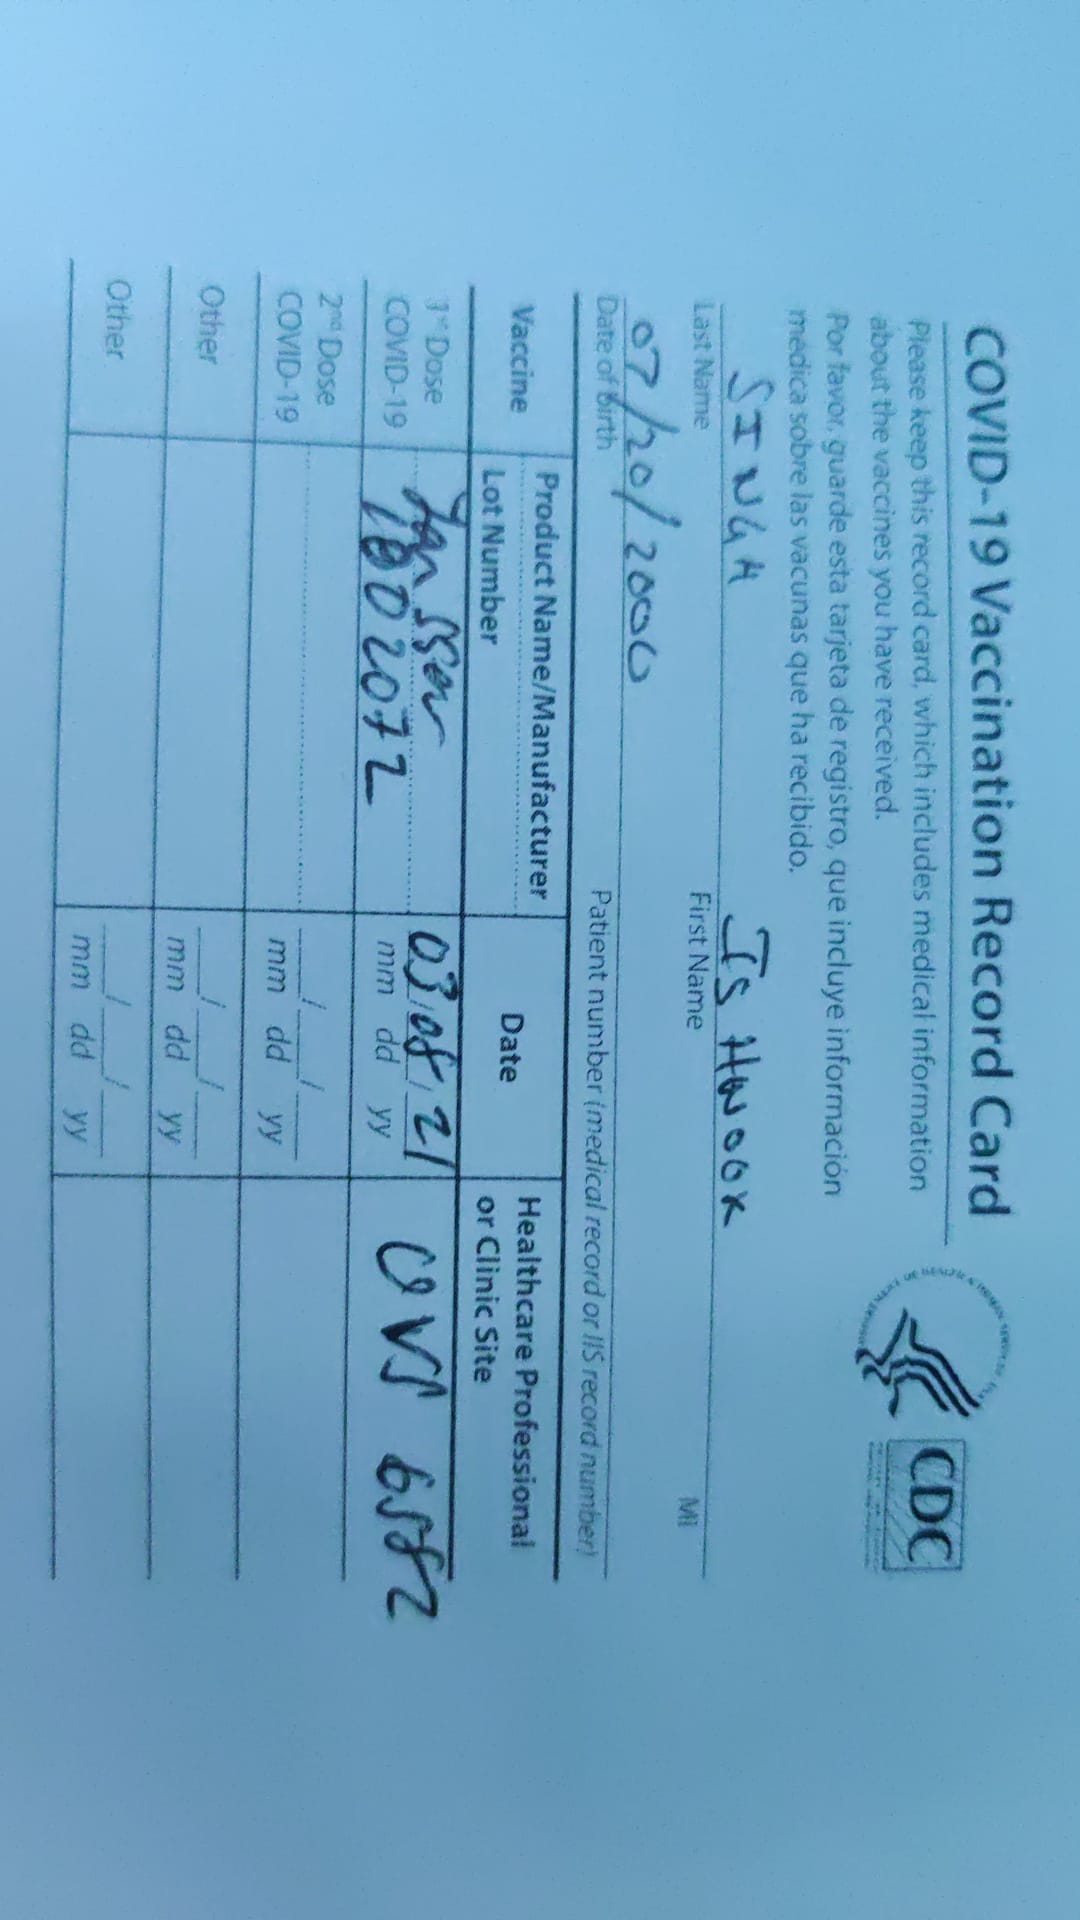 COVID-19 Vaccination Record Card
CDC
Please keep this record card, which includes medical information
about the vaccines you have received.
Por favor, guarde esta tarjeta de registro, que incluye información
médica sobre las vacunas que ha recibido.
SINGH ISHWOOK
Last Name First Name MI
07/20/2000
Date of Birth Patient number (medical record or IIS record number)
Vaccine Product Name/Manufacturer Date Healthcare Professional
Lot Number or Clinic Site
1st Dose Janssen 03/08/21 CVS 6582
COVID-19 1802072 mm dd yy
2nd Dose
COVID-19 mm dd yy
Other
mm dd yy
Other
mm dd yy